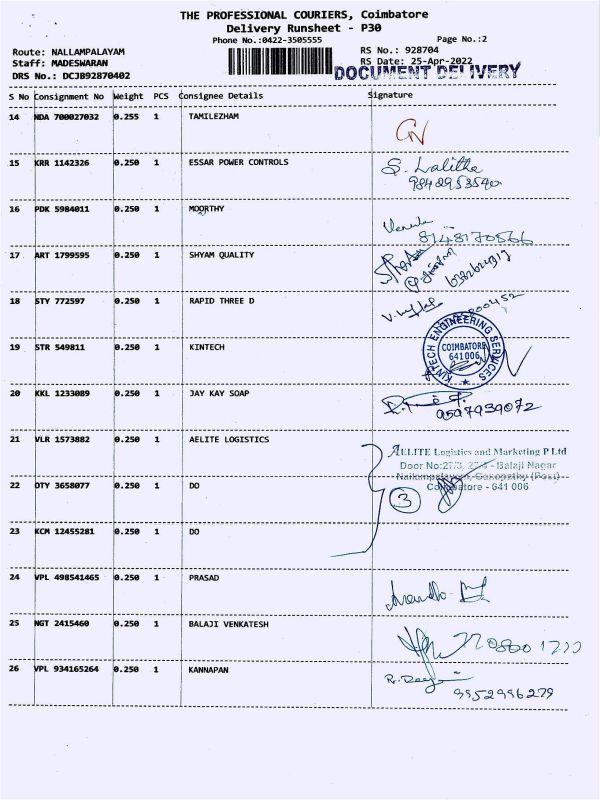 THE PROFESSIONAL COURIERS, Coimbatore
Delivery Runsheet - P30
Phone No.:0422-3505555 Page No.:2
Route: NALLAMPALAYAM RS No.: 928704
Staff: MADESWARAN RS Date: 25-Apr-2022
DRS No.: DCJB92870402 DOCUMENT DELIVERY
S No Consignment No Weight PCS Consignee Details Signature
14 NDA 700027032 0.255 1 TAMILEZHAM
15 KRR 1142326 0.250 1 ESSAR POWER CONTROLS S. Lalitha
9842953540
16 PDK 5984011 0.250 1 MOORTHY
8148170566
17 ART 1799595 0.250 1 SHYAM QUALITY
18 STY 772597 0.250 1 RAPID THREE D
19 STR 549811 0.250 1 KINTECH KINTECH ENGINEERING SERVICES
COIMBATORE
641006
20 KKL 1233089 0.250 1 JAY KAY SOAP
9597939072
21 VLR 1573882 0.250 1 AELITE LOGISTICS AELITE Logistics and Marketing P Ltd
Door No:27/3, Balaji Nagar
Nallampalayam, Ganapathy (Post)
22 OTY 3658077 0.250 1 DO Coimbatore - 641 006
3
23 KCM 12455281 0.250 1 DO
24 VPL 498541465 0.250 1 PRASAD
25 NGT 2415460 0.250 1 BALAJI VENKATESH
26 VPL 934165264 0.250 1 KANNAPAN
9952996279